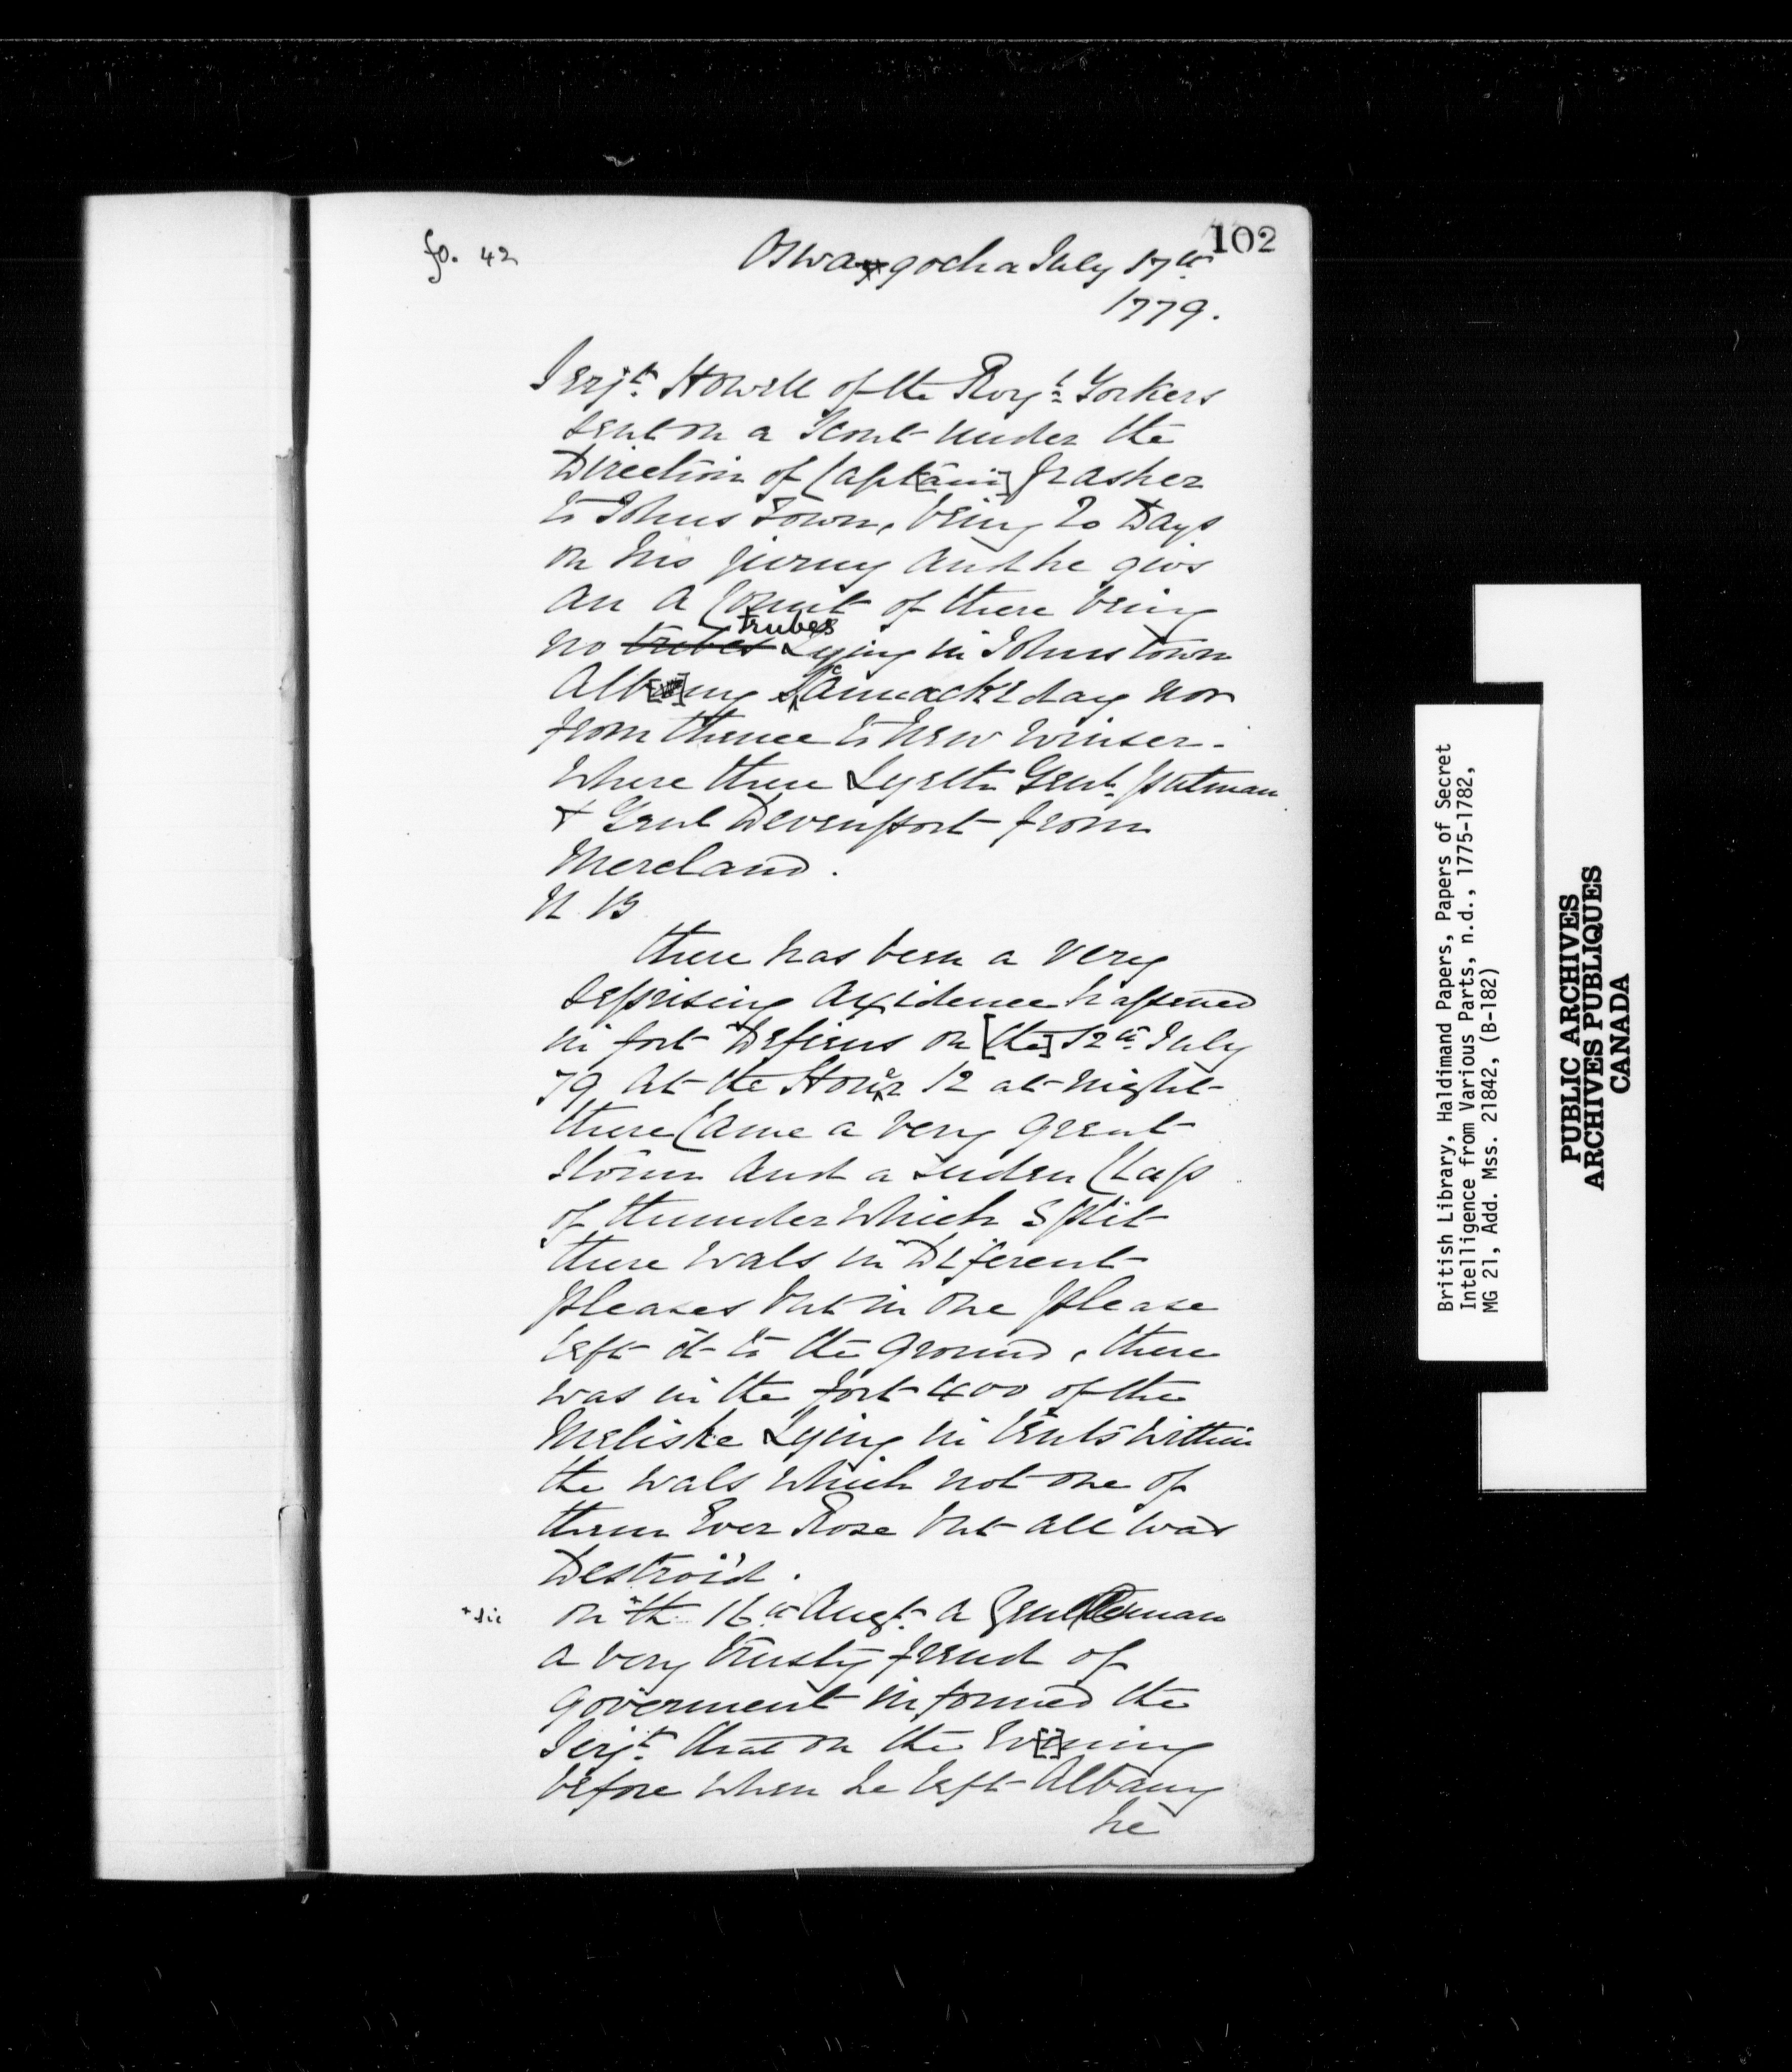 102
fo. 42
Oswagocha July 17th
1779.
Serjt. Howell of the Royl. Yorkers
sent on a Scout under the
Direction of Capt[ain] Frasher
to Johns Town, being 20 Days
on his jurney and he givs
an a Count of there being
no trubes Lying in Johns town
Alb[]ny Scannackeday nor
from thence to New Winser.
Where there Lyeth Genl. putman
& Genl Devenport from
Mereland.
N B
there has been a very
Serprising Axidence happened
in fort Defiens on [the] 12th July
79 at the Hour 12 at night
there Came a very great
Storm and a suden Clap
of thunder Which Split
there wals in Diferent
pleases but in one please
left it to the ground, there
was in the fort 400 of the
Melishe Lying in tents within
the wals which not one of
them Ever Rose but all was
Destroi'd.
*sic on *th 16th Augt. a Gentleman
a very trusty frend of
goverment informed the
Serjt. that on the Ev[]ning
before when he left Albany
he
British Library, Haldimand Papers, Papers of Secret
Intelligence from Various Parts, n.d., 1775-1782,
MG 21, Add. Mss. 21842, (B-182)
PUBLIC ARCHIVES
ARCHIVES PUBLIQUES
CANADA